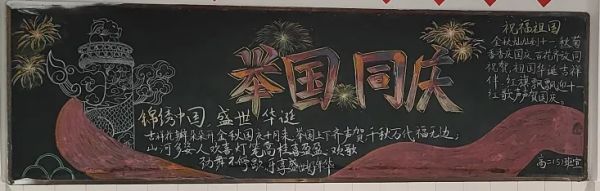 举国同庆
锦绣中国 盛世华诞
吉祥花瓣朵朵开金秋国庆十月来,举国上下齐声贺千秋万代福无边;
山河多姿人欢喜灯笼高挂喜盈盈,欢歌
劲舞不停歇,乐享盛世年华
祝福祖国
金秋灿灿到十一秋菊
香香庆国庆百花齐放同
祝贺,祖国华诞吉祥
什 红旗飘飘迎十一
红歌声声贺国庆。
高二(5)班宣